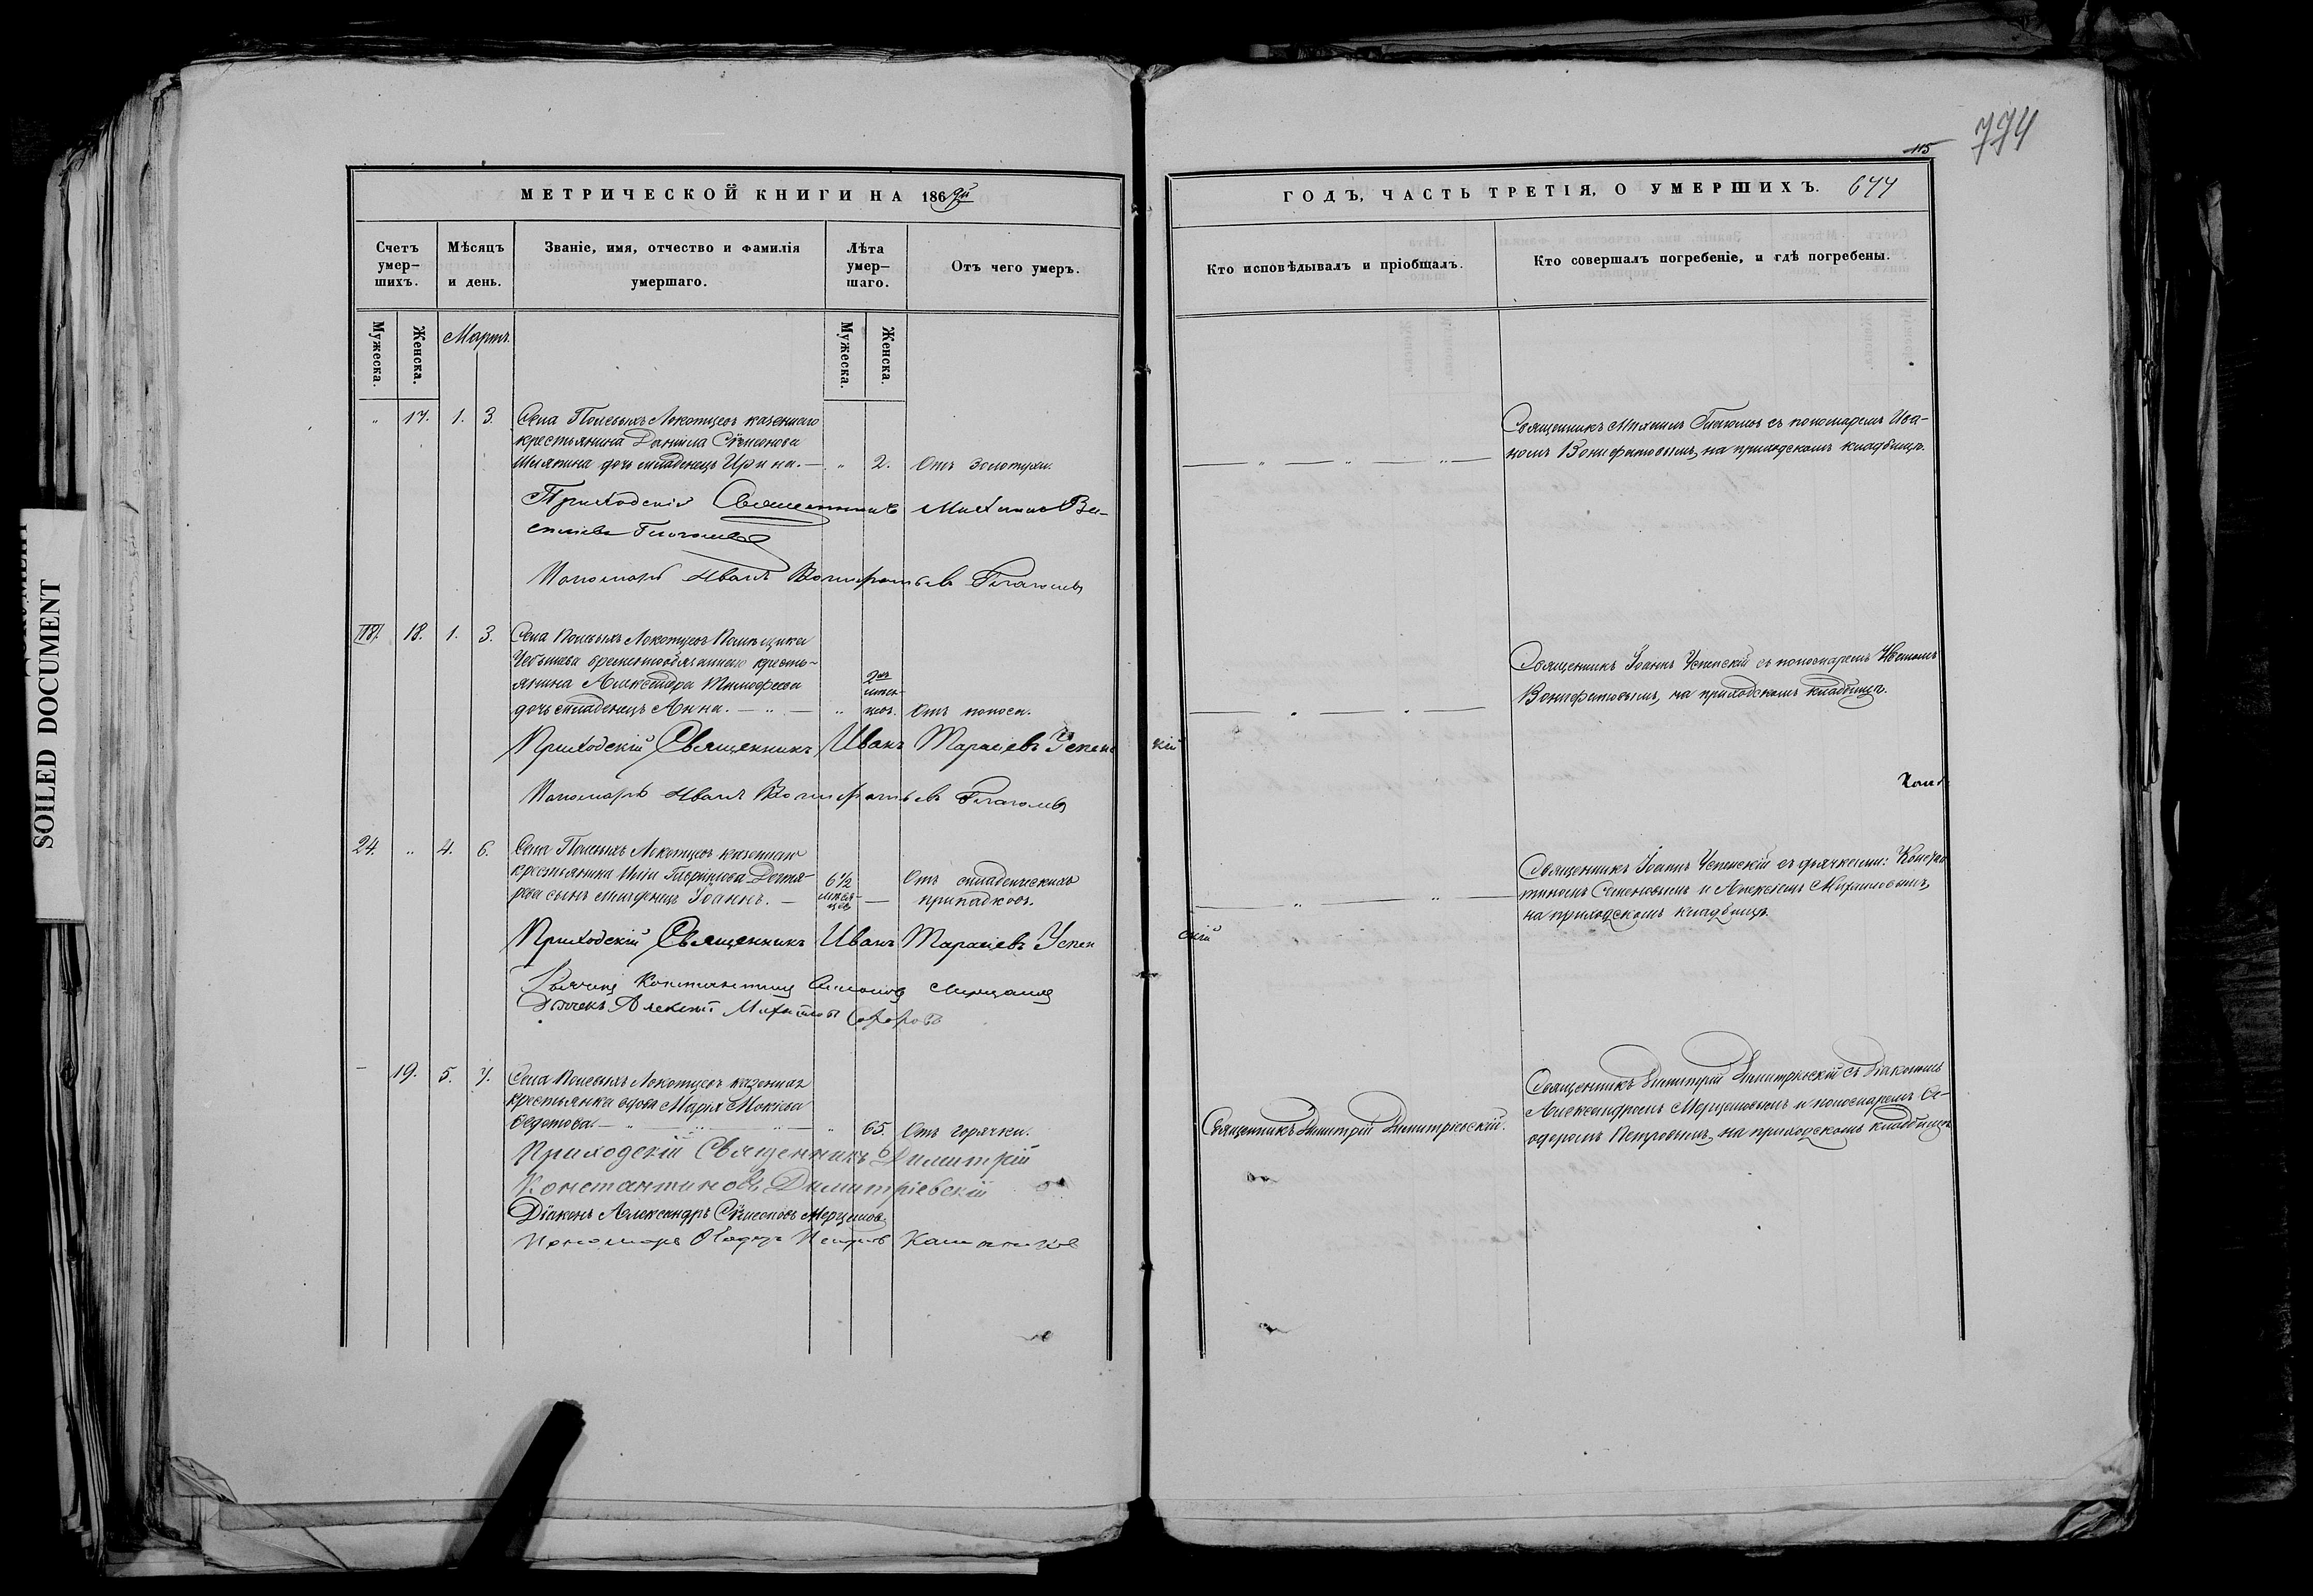 794
115
МЕТРИЧЕСКОЙ КНИГИ НА 186
ГОДЪ, ЧАСТЬ ТРЕТІЯ, О УМЕРШИХЪ. 677
Счетъ умер-шихъ.
Мѣсяцъ и день.
Званіе, имя, отчество и фамилія умершаго.
Лѣта умер-шаго.
Отъ чего умеръ.
Кто исповѣдывалъ и пріобщалъ.
Кто совершалъ погребеніе, и гдѣ погребены.
Мужеска.
Женска.
Мартъ.
Мужеска.
Женска.
17. 1. 3. Села Полевыхъ Локотцевъ казеннаго
крестьянина Даніила Сѵмеонова
дочь младенецъ Ирина. — „ 2. Отъ золотухи.
Священникъ Михаилъ Глаголевъ съ пономаремъ Ива-
номъ Вонифатовымъ, на приходскомъ кладбищѣ.
Приходскій Священникъ Михаилъ Ва-
сильевъ Глаголевъ
Пономарь Иванъ Вонифатьевъ Глаголевъ
18. 1. 3. Села Полевыхъ Локотцевъ Помѣщика
временнообязаннаго кресть-
янина Александра Тимофеева
дочь младенецъ Анна. — „ — „ Отъ поноса.
Священникъ Іоаннъ Успенскій съ пономаремъ Иваномъ
Вонифатовымъ, на приходскомъ кладбищѣ.
Приходскій Священникъ Иванъ Тарасіевъ Успенскій
Пономарь Иванъ Вонифатьевъ Глаголевъ
24. „ 4. 6. Села Полевыхъ Локотцевъ казеннаго
крестьянина Иліи Гавріилова
сынъ младенецъ Іоаннъ. — 6½ мѣся-цев — Отъ младенческихъ
припадковъ.
Священникъ Іоаннъ Успенскій съ дьячками: Констан
тиномъ Семеновымъ и Алексіемъ Михаиловымъ,
на приходскомъ кладбищѣ.
Приходскій Священникъ Иванъ Тарасіевъ Успенскій
Дьячекъ Константинъ
Дьячекъ Алексій Михайловъ
19. 5. 7. Села Полевыхъ Локотцевъ казенная
крестьянка вдова Марія Мокіева
Ѳедотова. — „ 65. Отъ горячки.
Священникъ Димитрій Димитріевскій.
Священникъ Димитрій Димитріевскій съ діакономъ
Александромъ Мерцаловымъ и пономаремъ Ѳе-
одоромъ Петровымъ, на приходскомъ кладбищѣ
Приходскій Священникъ Димитрій
Константиновъ Димитріевскій
Діаконъ Александръ Сѵмеоновъ Мерцаловъ
Пономарь Ѳеодоръ Петровъ
SOILED DOCUMENT